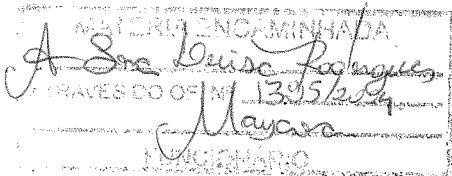 MATÉRIA ENCAMINHADA
A Sra Luisa Rodrigues
ATRAVÉS DO OF. Nº 1395/2024
Mayara
FUNCIONÁRIO